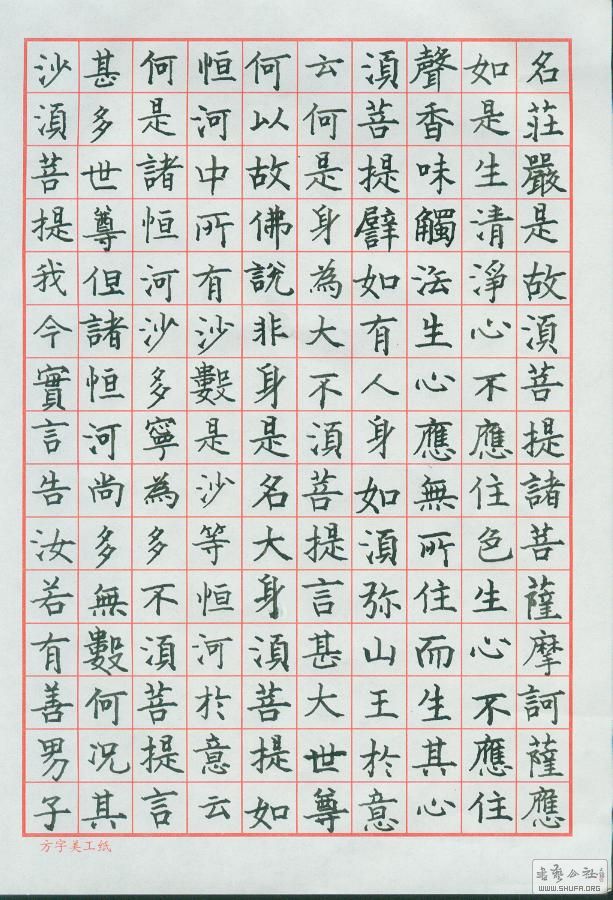 名莊嚴是故須菩提諸菩薩摩訶薩應
如是生清淨心不應住色生心不應住
聲香味觸法生心應無所住而生其心
須菩提譬如有人身如須弥山王於意
云何是身為大不須菩提言甚大世尊
何以故佛說非身是名大身須菩提如
恒河中所有沙數是沙等恒河於意云
何是諸恒河沙多寧為多不須菩提言
甚多世尊但諸恒河尚多無數何況其
沙須菩提我今實言告汝若有善男子
方字美工纸
书艺公社
WWW.SHUFA.ORG